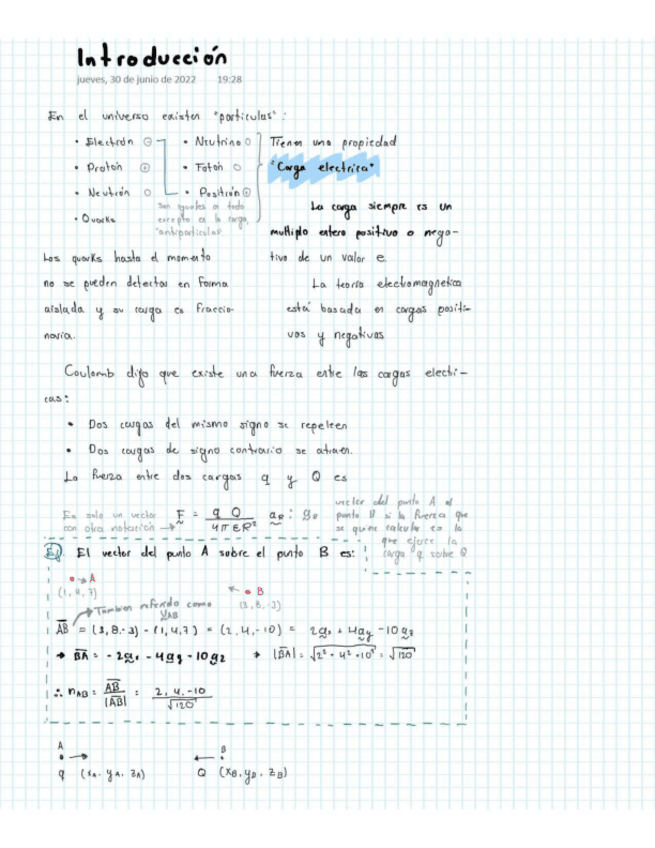 Introducción
jueves, 30 de junio de 2022 19:28
En el universo existen "partículas":
• Electrón ⊖ • Neutrino ○ Tienen una propiedad
• Protón ⊕ • Fotón ○ "Carga electrica"
• Neutrón ○ • Positrón ⊕
• Quarks
son iguales en todo
excepto en la carga,
"antiparticulas"
La carga siempre es un
multiplo entero positivo o nega-
tivo de un valor e
Los quarks hasta el momento
no se pueden detectar en forma
aislada y su carga es fraccio-
naria.
La teoría electromagnetica
está basada en cargas positi-
vas y negativas
Coulomb dijo que existe una fuerza entre las cargas electri-
cas:
• Dos cargas del mismo signo se repelen
• Dos cargas de signo contrario se atraen.
La fuerza entre dos cargas q y Q es
Es solo un vector
con otra notación →
F = q Q / 4πεR² aR :
vector del punto A al
punto B si la fuerza que
se quiere calcular es la
que ejerce la
carga q sobre Q
Ej. El vector del punto A sobre el punto B es:
A B
(1, 4, 7) (3, 8, -3)
Tambien referido como
AB = (3, 8, -3) - (1, 4, 7) = (2, 4, -10) = 2ax + 4ay - 10az
→ BA = -2ax - 4ay - 10az → |BA| = √2² + 4² + 10² = √120
∴ nAB = AB / |AB| = 2, 4, -10 / √120
A B
q (xA, yA, zA) Q (xB, yB, zB)